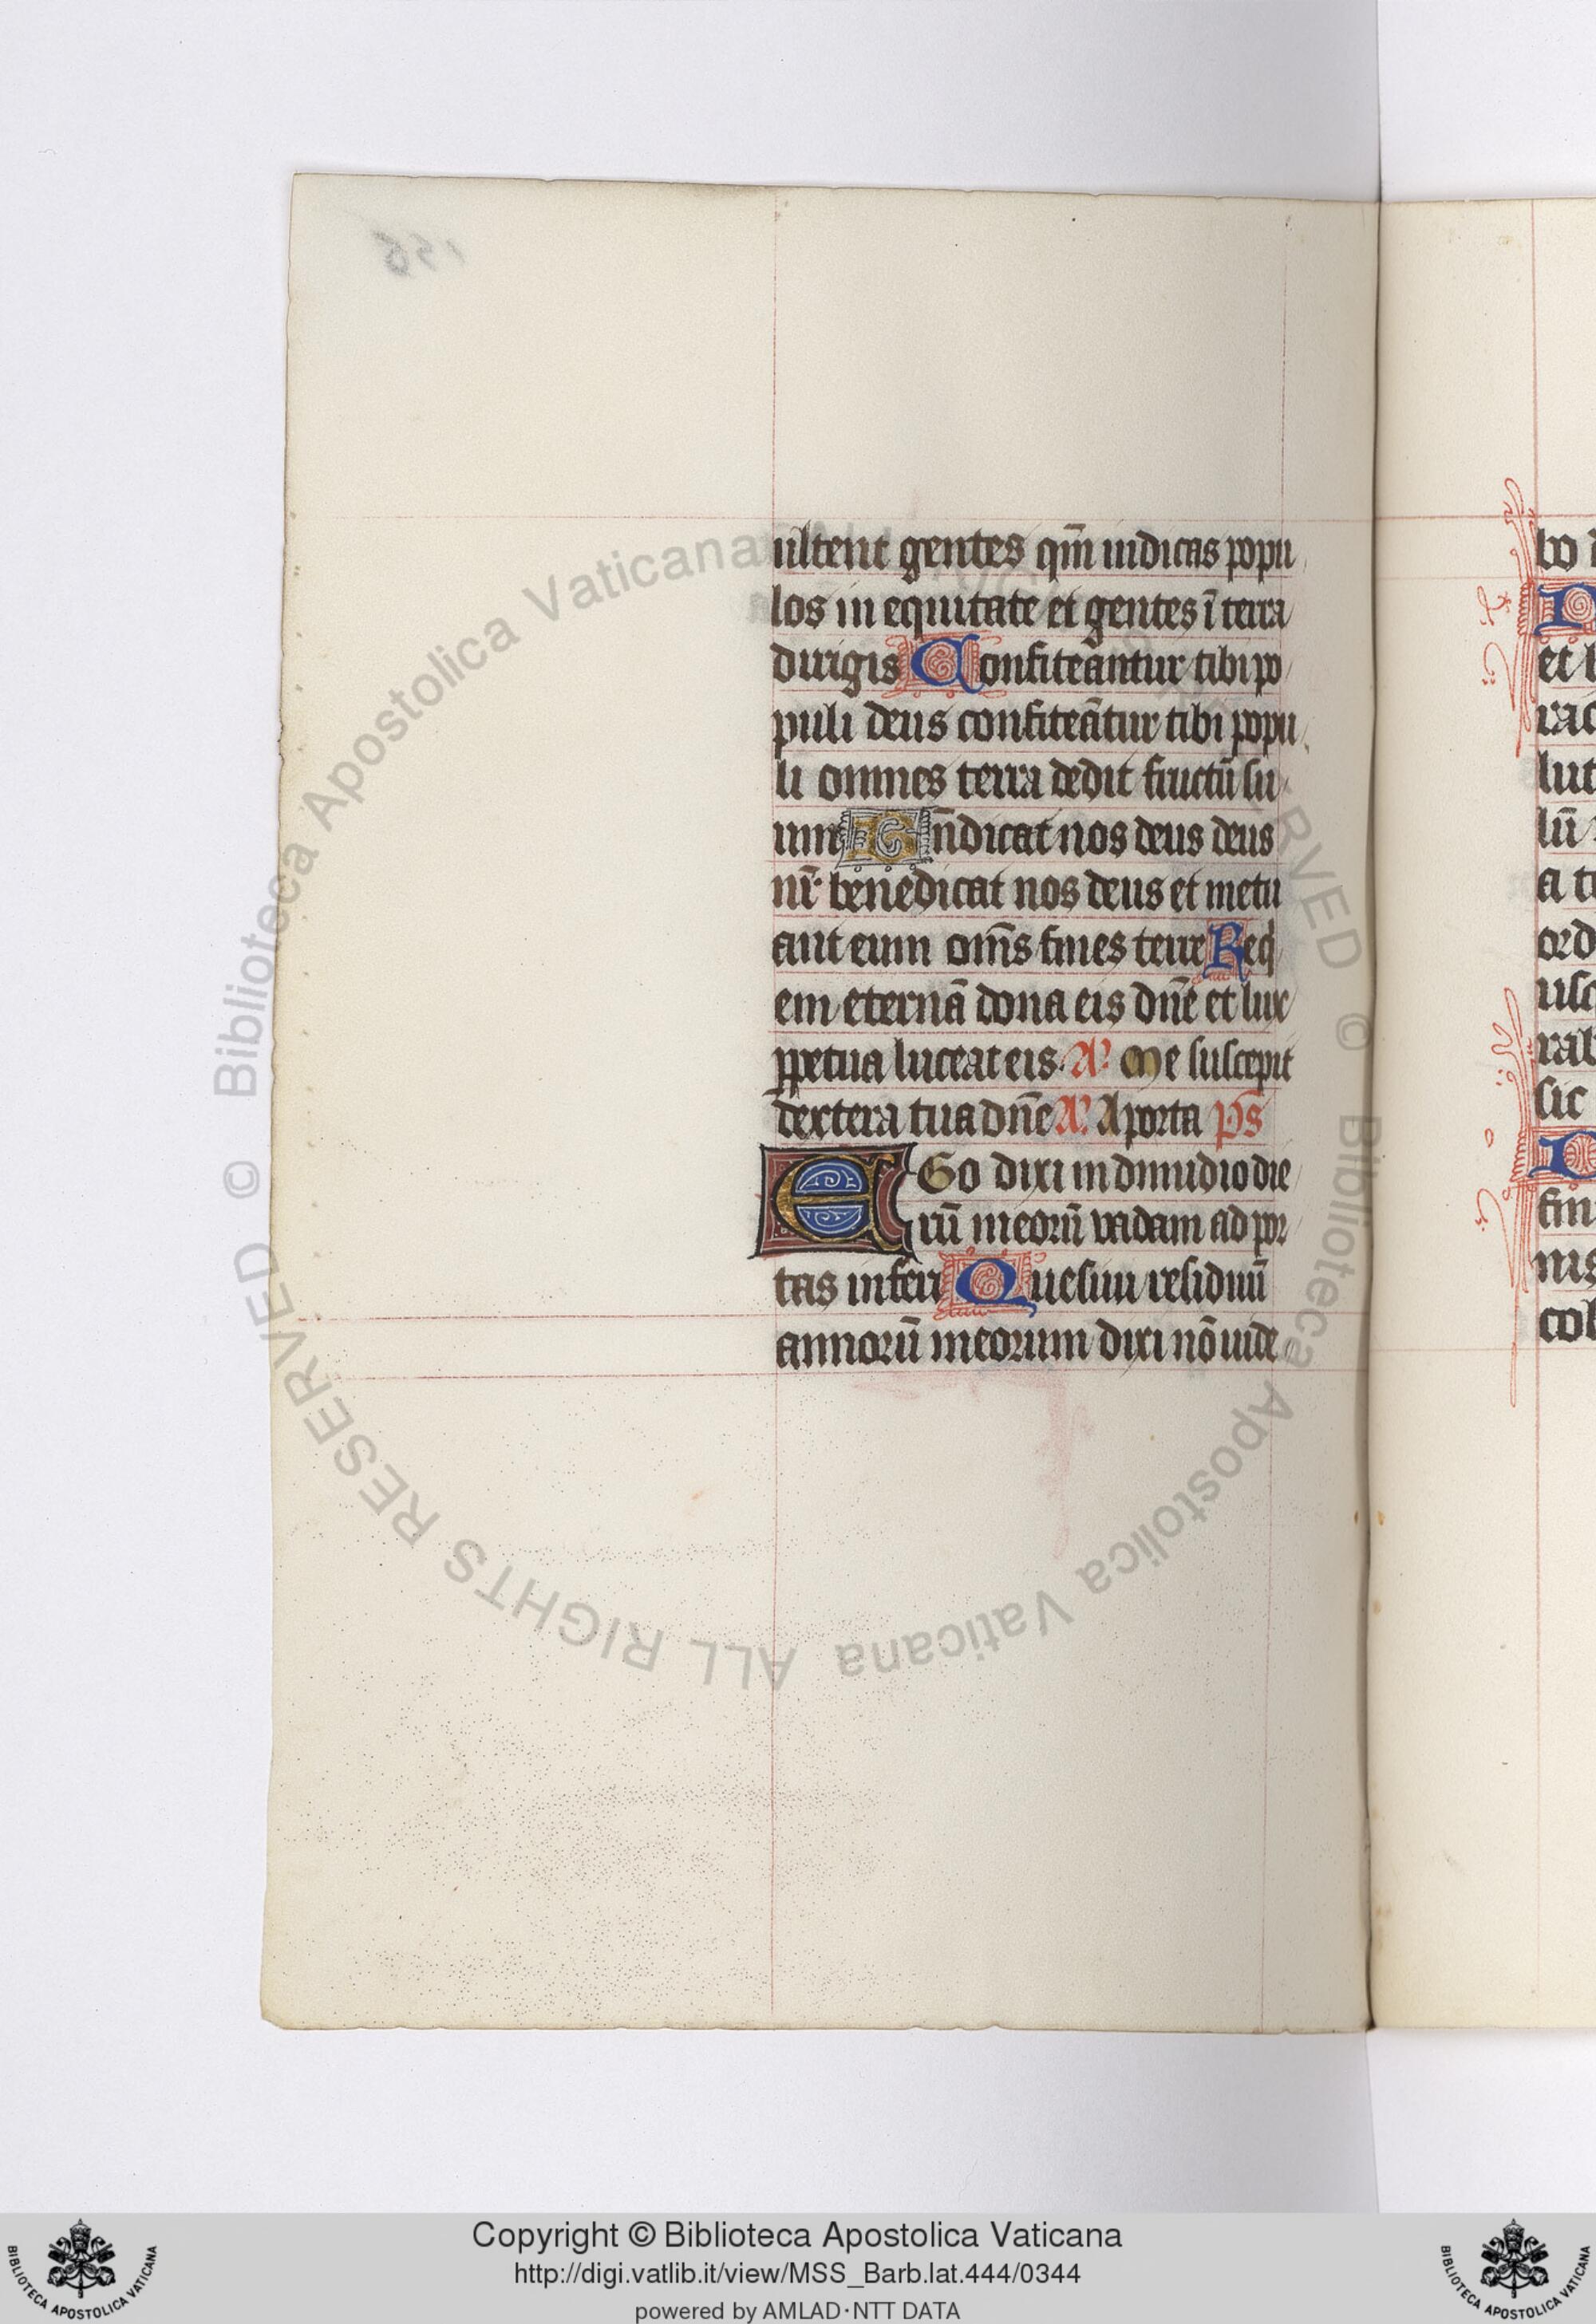 ultent gentes qm̄ iudicas popu
los in equitate et gentes ī terra
dirigis Confiteantur tibi po
puli deus confiteãtur tibi popu
li omnes terra dedit fructū su
um n̄dicat nos deus deus
nr̄ benedicat nos deus et metu
ant eum om̄s fines terre Req
em eternã dona eis dn̄e et lux
ꝑpetua luceat eis. A. Me suscepit
dextera tua dn̄e A. A porta ps̄
EGo dixi in dimidio die
rū meorū vadam ad por
tas inferi Quesiui residuū
annorū meorum dixi nō uide
bo
et
rac
lut
lū
a t
ord
usq
rab
sic
fin
nis
col
156
© Biblioteca Apostolica Vaticana ALL RIGHTS RESERVED © Biblioteca Apostolica Vaticana ALL RIGHTS RESERVED
Copyright © Biblioteca Apostolica Vaticana
http://digi.vatlib.it/view/MSS_Barb.lat.444/0344
powered by AMLAD·NTT DATA
BIBLIOTECA APOSTOLICA VATICANA
BIBLIOTECA APOSTOLICA VATICANA